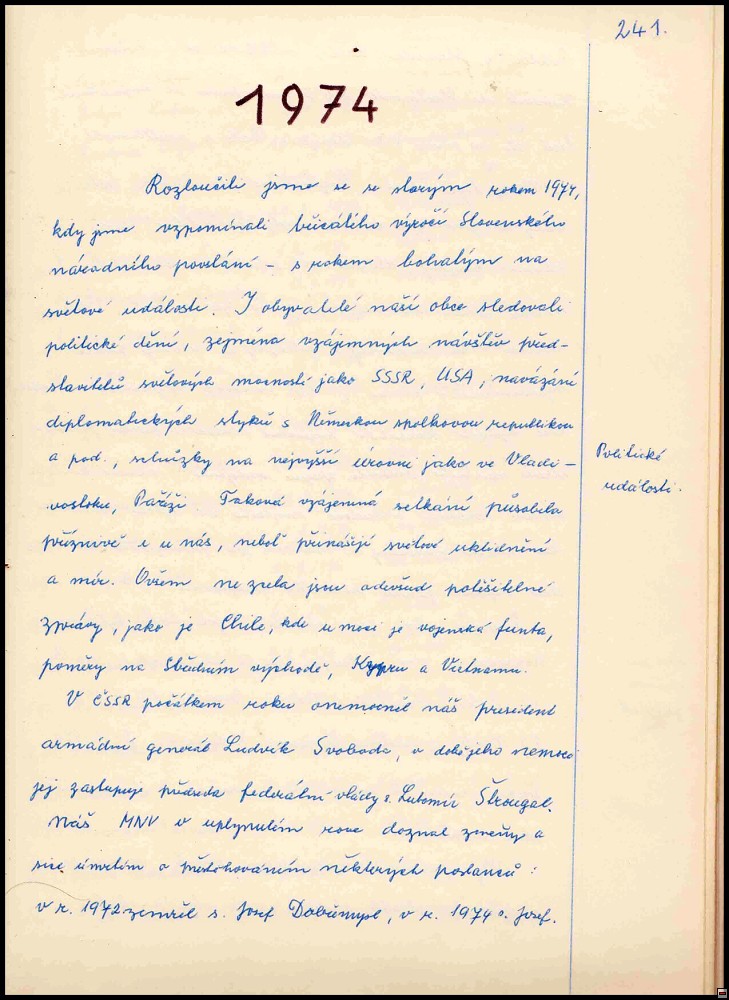 241.
1974
Rozloučili jsme se se starým rokem 1974,
kdy jsme vzpomínali třicátého výročí Slovenského
národního povstání - s rokem bohatým na
světové události. I obyvatelé naší obce sledovali
politické dění, zejména vzájemných návštěv před-
stavitelů světových mocností jako SSSR, USA, navázání
diplomatických styků s Německou spolkovou republikou
a pod., schůzky na nejvyšší úrovni jako ve Vladi-
vostoku, Paříži. Taková vzájemná setkání působila
Politické
události.
příznivě i u nás, neboť přinášejí světové uklidnění
a mír. Ovšem ne zcela jsou odevšad potěšitelné
zprávy, jako je Chile, kde u moci je vojenská junta,
poměry na Středním východě, Kypru a Vietnamu.
V ČSSR počátkem roku onemocněl náš president
armádní generál Ludvík Svoboda, v době jeho nemoci
jej zastupuje předseda federální vlády s. Lubomír Štrougal.
Náš MNV v uplynulém roce doznal změny a
sice úmrtím a přestěhováním některých poslanců:
v r. 1972 zemřel s. Josef Dobřemysl, v r. 1974 s. Josef.